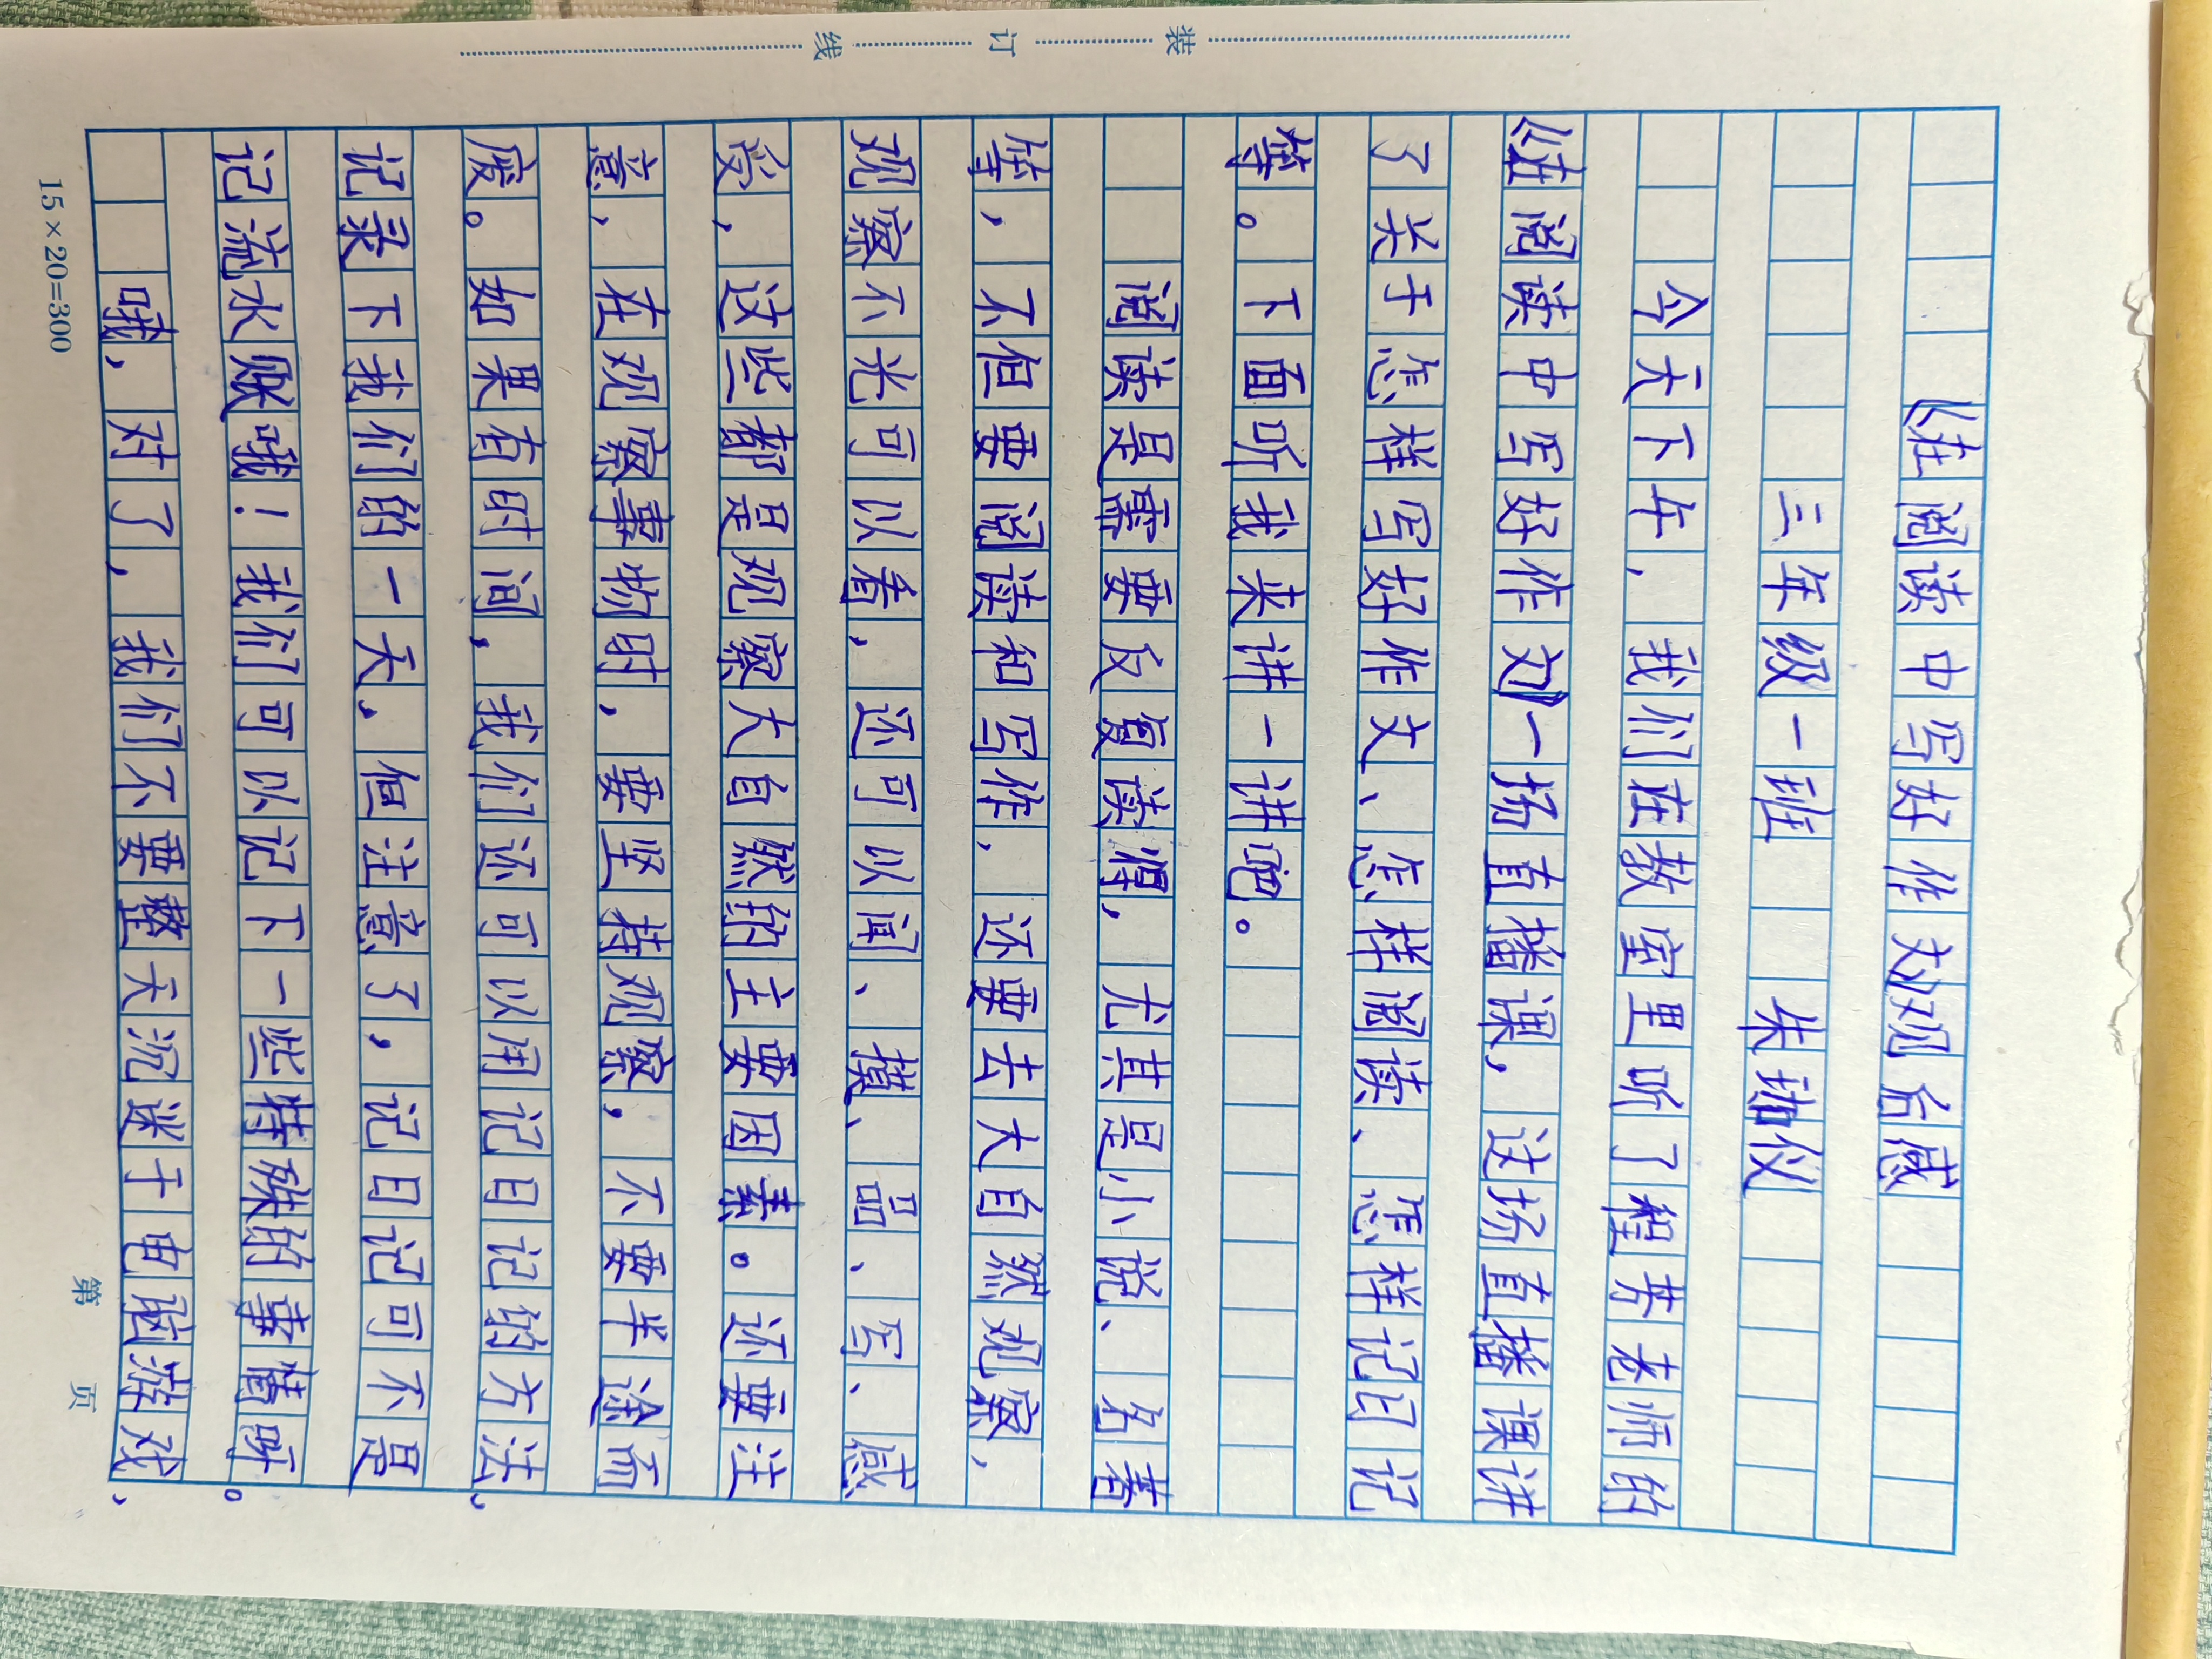 装 订 线
《在阅读中写好作文》观后感
三年级一班 朱珈仪
今天下午，我们在教室里听了程芳老师的
《在阅读中写好作文》一场直播课，这场直播课讲
了关于怎样写好作文、怎样阅读、怎样记日记
等。下面听我来讲一讲吧。
阅读是需要反复读得，尤其是小说、名著
等，不但要阅读和写作，还要去大自然观察，
观察不光可以看，还可以闻、摸、品、写、感
受，这些都是观察大自然的主要因素。还要注
意，在观察事物时，要坚持观察，不要半途而
废。如果有时间，我们还可以用记日记的方法，
记录下我们的一天，但注意了，记日记可不是
记流水账哦！我们可以记下一些特殊的事情呀。
哦，对了，我们不要整天沉迷于电脑游戏，
15×20=300
第 页